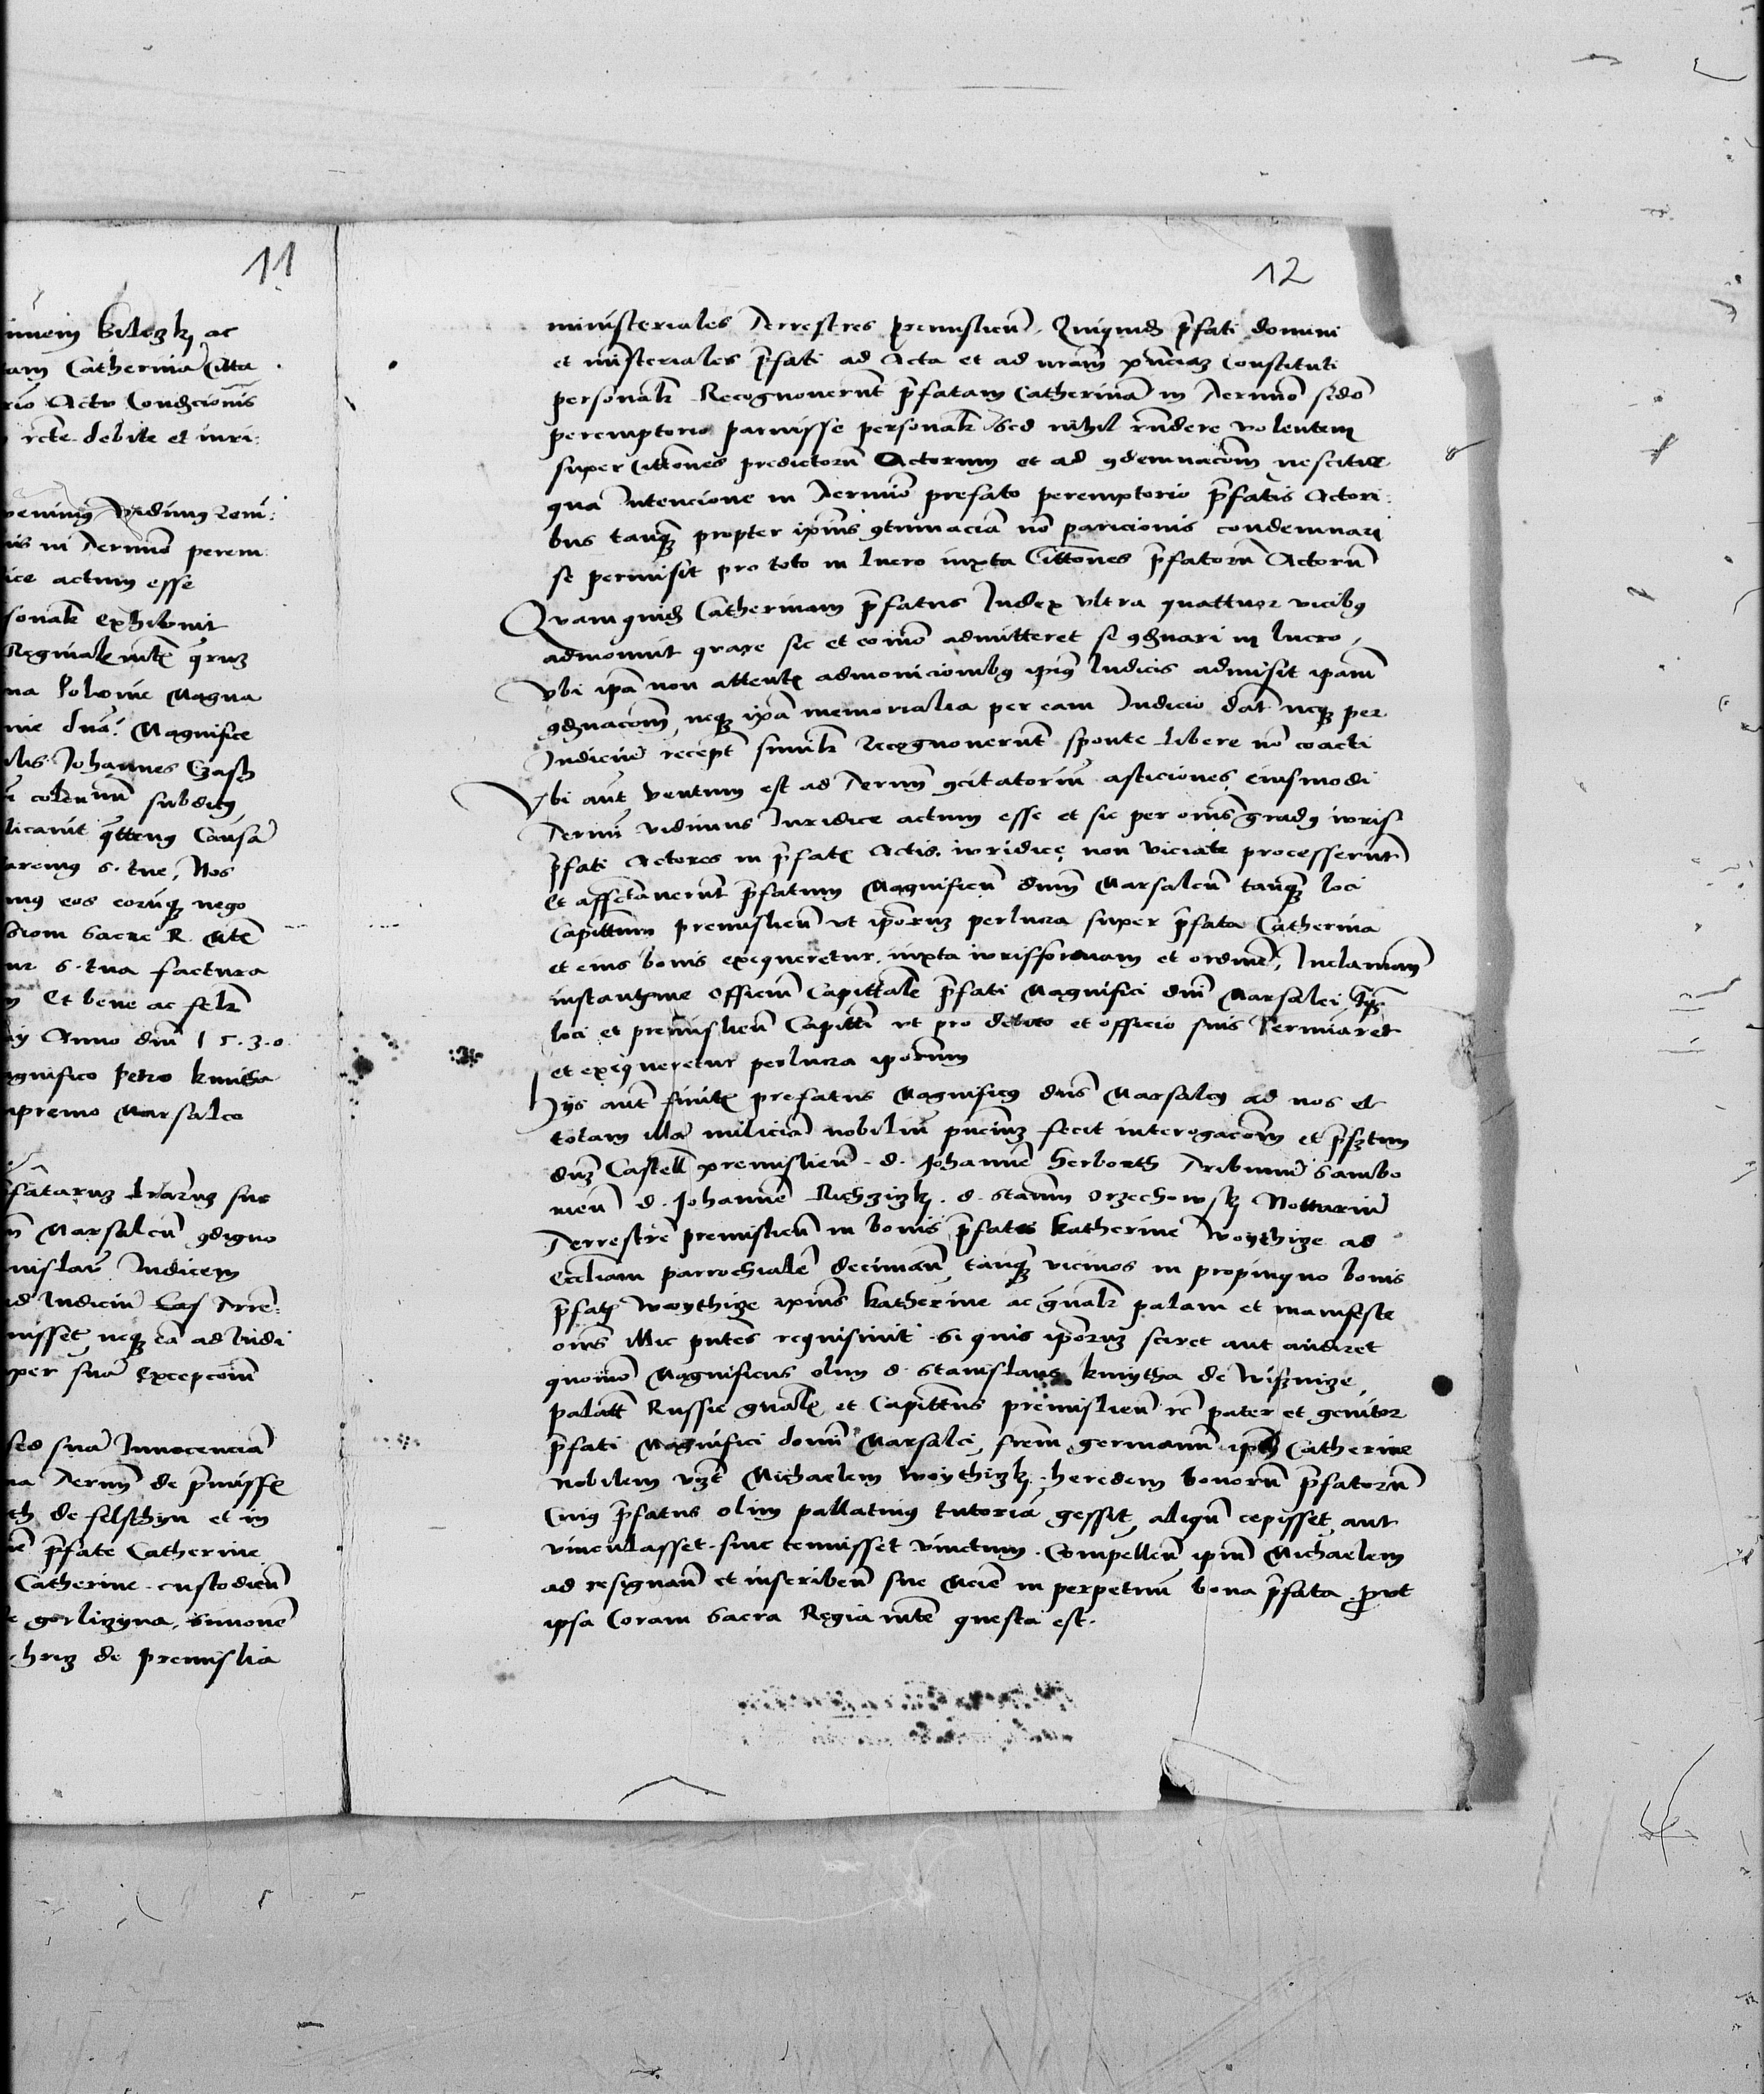 11
inem bilozkj ac
am Catherinā Citta
rio Actu Condzcionis
rcte debite et iuri:
is in Termīo perem
ice actum esse
sonalr exhibuit
na Polonie Magna
nie dnā Magnifice
lis Johannes Czash
aremus S. tue, Nos
mus eos eorūque nego
diom Sacre R. Mte
ur S. tua factura
Et bene ac felr
Anno dnī 1530
agnifico Petro kmitha
upremo Marsalco
fataruz lrāruz sue
Marsalcū 9digno
nislaū Iudicem
ad Iudiciū Cas Trre:
uisset neque eā ad Iudi
per suā Excepcionē
sed suā Innocenciā
na Termī de p̄missis
th de felsthyn et in
p̄fate Catherine
Catherine custodien̄
gorlizyna, Simonē
hriz de premislia
12
ministeriales Terrestres premislien̄. Quiquid p̄fati domini
et ministeriales p̄fati ad Acta et ad nram pn̄ciaz Constituti
personalr Recognouerunt p̄fatam Catherinā in Termīo sedō
peremptorio paruisse personalr Sed nihil rn̄dere volentem
super Cittōnes predictorū Actorum et ad 9demnacōm nescitur
qua Intencione in Termīo prefato peremptorio p̄fatis Actori:
bus tanq̄ propter ipīus 9tumaciā nō paricionis condemnari
se permisit pro toto in lucro iuxta Cittōnes p̄fatorū Actorū
Quamquid Catherinam p̄fatus Iudex vltra quattuor vicibus
admonuit quare sic et eo mō admitteret se 9dnari in lucro,
Vbi ipā non attentis admonicionibus ipius Iudicis admisit ipam
9dnacōm, neque ipā memorialia per eam Iudicio dat neque per
Iudiciū recept simulr recognouerunt sponte libere nō coacti
Vbi aut ventum est ad Termī 9citatoriū asticiones eiusmodi
Termī vidimus Iuridice actum esse et sic per om̄s gradus iuris
p̄fati Actores in p̄fatis Actis iuridice non viciate processerunt
Et affectauerunt p̄fatum Magnificū dnm̄ Marsalcū tanq̄ loci
Capitt̄um premislien̄ vt ipōruz perlucra super p̄fata Catherina
et eius bonis exequeretur iuxta iurisformam et ordinē, Inclaman̄
instantq̄ue Officiū Capittale p̄fati Magnifici dnī Marsalci
loci et premislien̄ Capittī vt pro debito et officio suis
et exequeretur perlucra ipōrum
hijs autē finitis prefatus Magnificus dnūs Marsalcus ad nos et
totam illā miliciā nobiliū pn̄ciuz fecit interogacōm et p̄sztum
duz Castell̄ premislien̄ d. Johannē Herborth Tribunū Sambo
rien̄ d. Johannē d. Stanm̄ Orzechowskj Nottariū
Terrestrē premislien̄ in bonis p̄fate Katherine Woythize ad
Eccliam parrochialē deciman̄ tanq̄ vicinos in propinquo bonis
p̄fate Woythize ipīus Katherine ac gn̄alr palam et manifeste
om̄s illic pn̄tes requisiuit Si quis ipōruz sciret aut audiret
quomō Magnificus olim d. Stanislaus kmytha de Wisznize,
palatt Russie gnalis, et Capitt̄us premislien̄ rc̄ pater et genitor
p̄fati Magnifici dominī Marsalci, frēm germanū Catherine
nobilem vzt Michaelem Woythizkj heredem bonorū p̄fatorū
Cuius p̄fatus olim pallatinus tutoriā gessit, aliqn̄ cepisset aut
vinculasset siue tenuisset vinctum. Compellen̄ ipm̄ Michaelem
ad resignan̄ et inscriben̄ sue Mcie in perpetuū bona p̄fata prout
ipsa Coram Sacra Regia mte questa est.